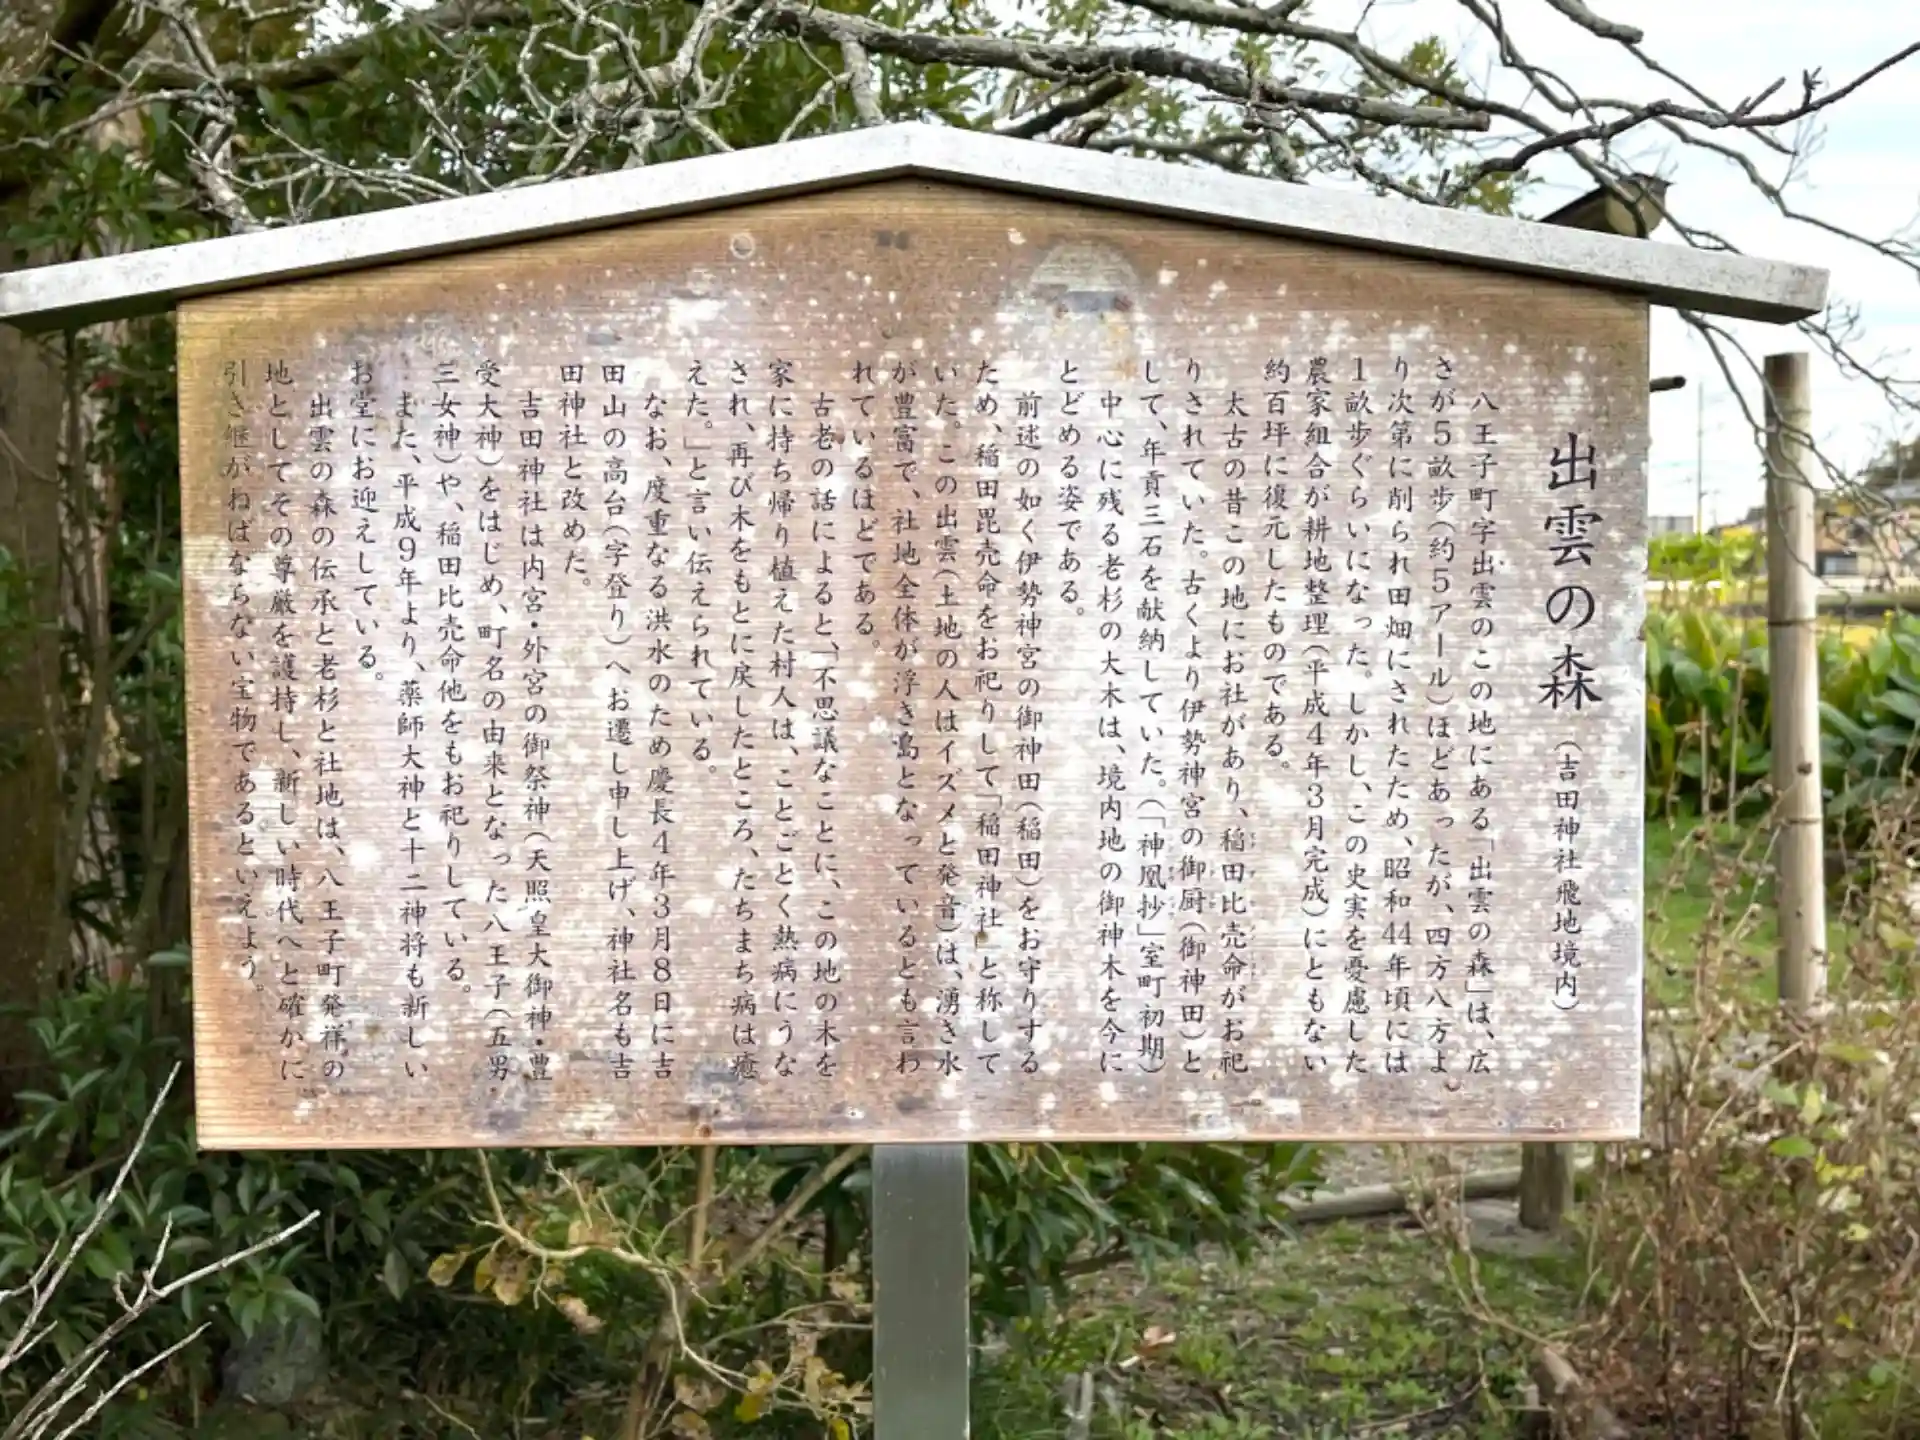 出雲の森 (吉田神社飛地境内)
八王子町字出雲のこの地にある「出雲の森」は、広
さが5畝歩(約5アール)ほどあったが、四方八方よ
り次第に削られ田畑にされたため、昭和44年頃には
1畝歩ぐらいになった。しかし、この史実を憂慮した
農家組合が耕地整理(平成4年3月完成)にともない
約百坪に復元したものである。
太古の昔この地にお社があり、稲田比売命がお祀
りされていた。古くより伊勢神宮の御厨(御神田)と
して、年貢三石を献納していた。(「神凰抄」室町初期)
中心に残る老杉の大木は、境内地の御神木を今に
とどめる姿である。
前述の如く伊勢神宮の御神田(稲田)をお守りする
ため、稲田毘売命をお祀りして「稲田神社」と称して
いた。この出雲(土地の人はイズメと発音)は、湧き水
が豊富で、社地全体が浮き島となっているとも言わ
れているほどである。
古老の話によると、「不思議なことに、この地の木を
家に持ち帰り植えた村人は、ことごとく熱病にうな
され、再び木をもとに戻したところ、たちまち病は癒
えた。」と言い伝えられている。
なお、度重なる洪水のため慶長4年3月8日に吉
田山の高台(字登り)へお遷し申し上げ、神社名も吉
田神社と改めた。
吉田神社は内宮・外宮の御祭神(天照皇大御神・豊
受大神)をはじめ、町名の由来となった八王子(五男
三女神)や、稲田比売命他をもお祀りしている。
また、平成9年より、薬師大神と十二神将も新しい
お堂にお迎えしている。
出雲の森の伝承と老杉と社地は、八王子町発祥の
地としてその尊厳を護持し、新しい時代へと確かに
引き継がねばならない宝物であるといえよう。